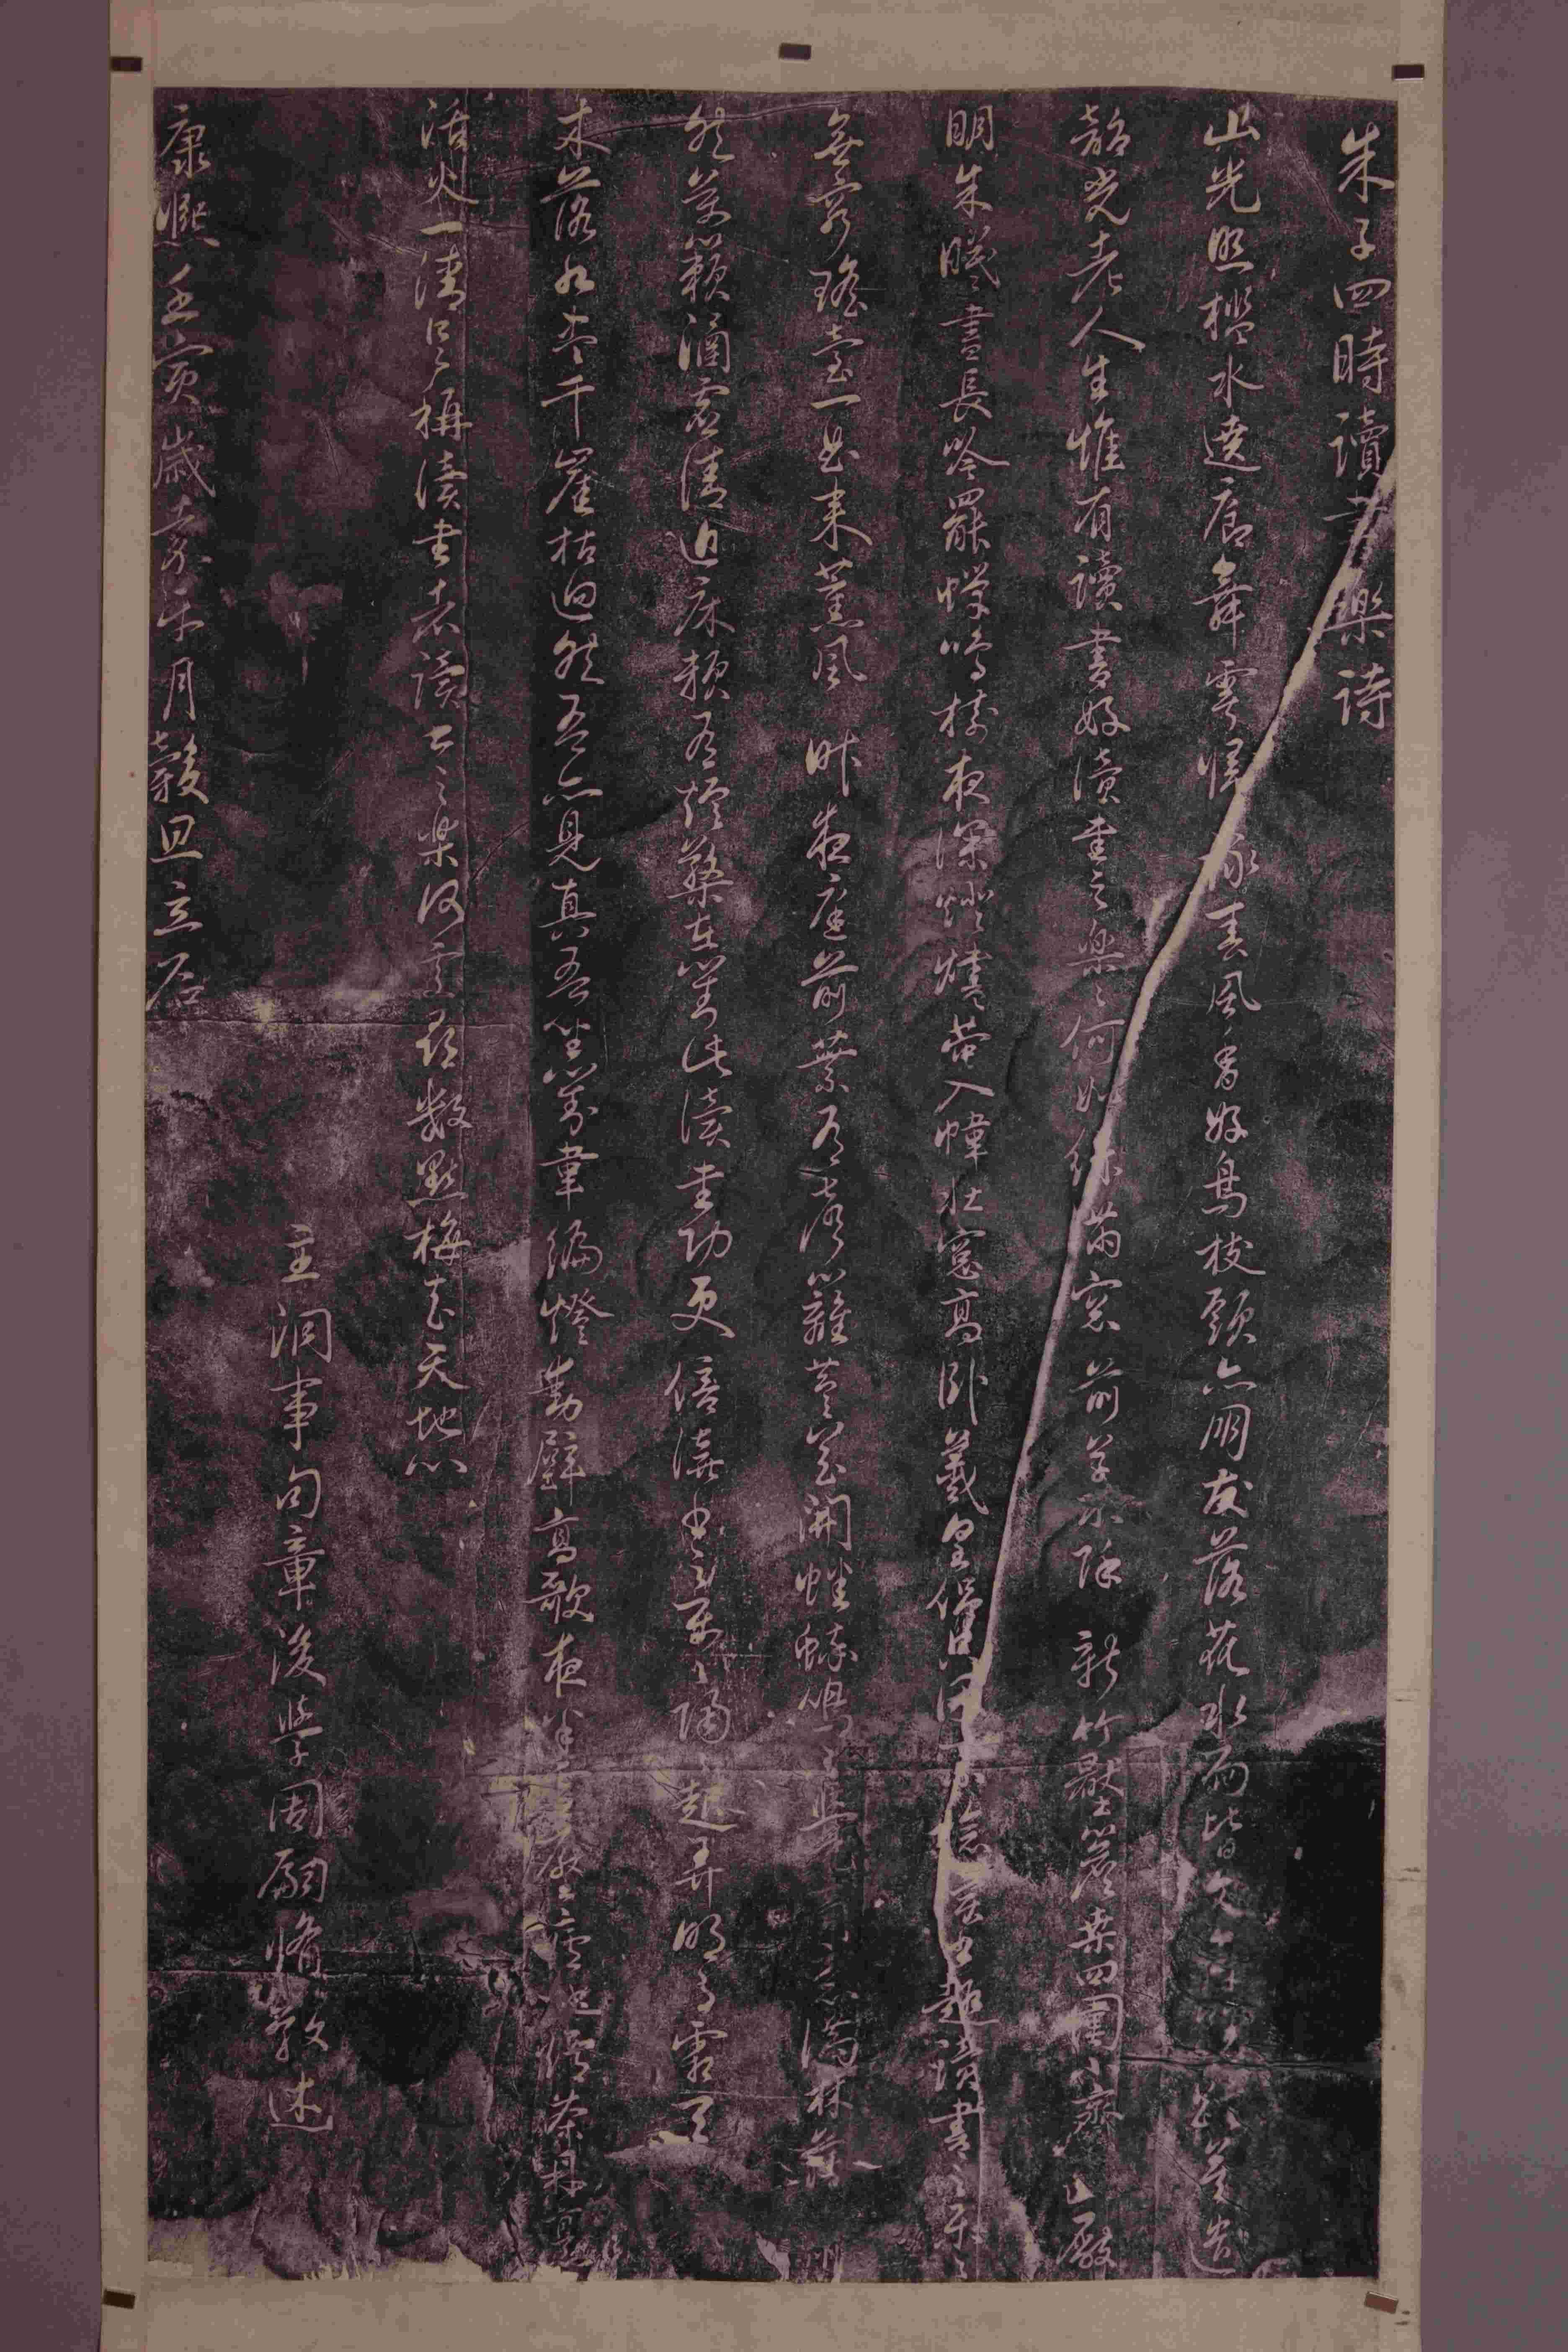 朱子四時讀書樂詩
山光照檻水遶廊舞雩歸詠春風香好鳥枝頭亦朋友落花水面皆文章蹉莫遣
韶光老人生惟有讀書好讀書之樂樂何如綠滿窓前草不除 新竹壓簷桑四圍小齋 敞
明朱曦晝長吟罷蟬鳴樹夜深燼落入幃北窓高臥羲皇侶只因 書之樂
無窮瑤臺一曲來薰風 昨夜庭前葉有聲籬荳花開蟋蟀鳴 滿林薄
然萬籟涵虛清近床賴有短檠在對此讀書功更倍讀書之樂樂陶陶起弄明月霜天
木落水盡千崖枯迥然吾亦見真吾坐對韋編燈動壁高歌夜半 爐地爐茶鼎烹
活火一清 稱讀書者讀書之樂何處尋數點梅花天地心
主洞事句章後學周嗣脩敬述
康熙壬寅歲 月穀旦立石